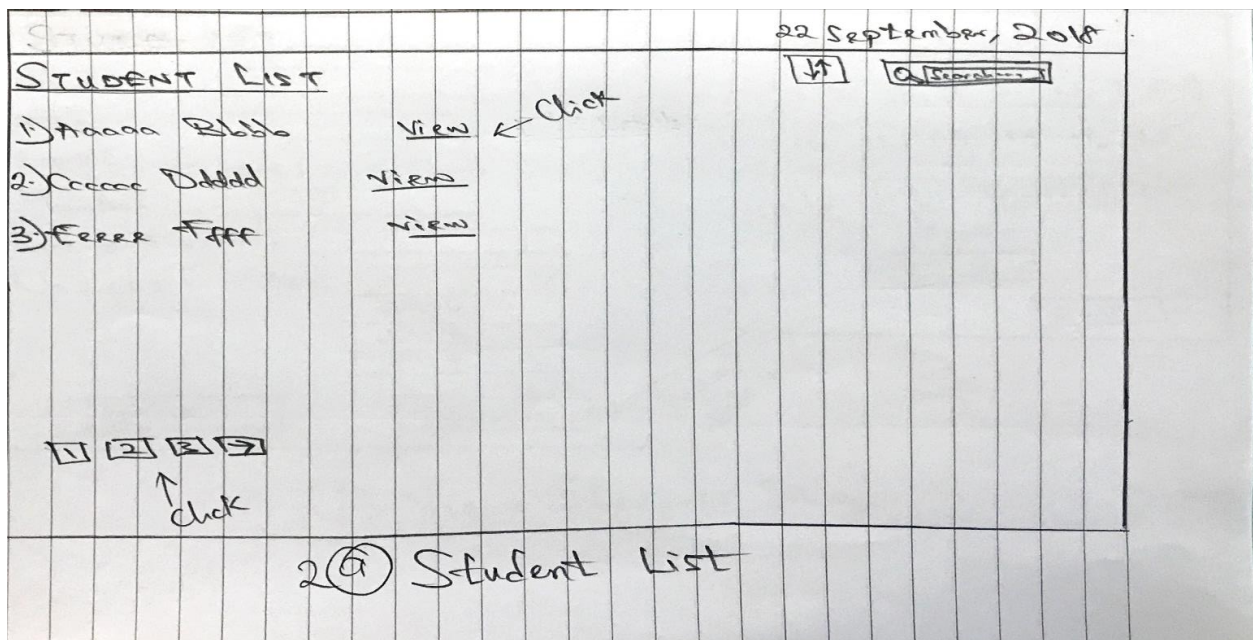 22 September, 2018
STUDENT LIST ↓↑ Search...
1) Aaaaa Bbbb View ← Click
2.) Cccccc Ddddd View
3) Eeeee Ffff View
1 2 3 →
↑
Click
2 a Student List